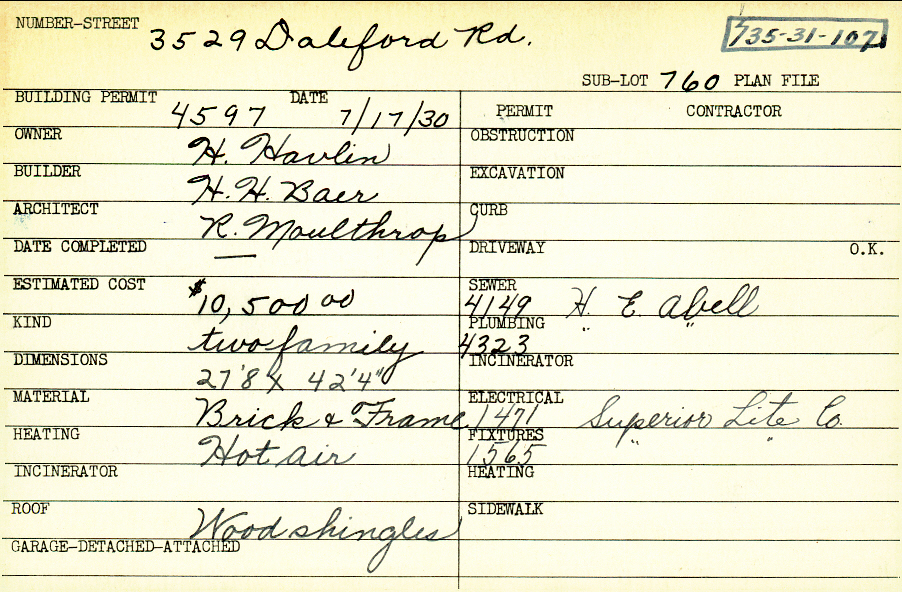 NUMBER-STREET 3529 Daleford Rd. 735-31-107
SUB-LOT 760 PLAN FILE
BUILDING PERMIT 4597 DATE 7/17/30 PERMIT CONTRACTOR
OWNER H. Havlin OBSTRUCTION
BUILDER H. H. Baer EXCAVATION
ARCHITECT R. Moulthrop CURB
DATE COMPLETED — DRIVEWAY O.K.
ESTIMATED COST $10,500 00 SEWER 4149 H. E. Abell
KIND two family PLUMBING 4323 " "
DIMENSIONS 27'8 X 42'4" INCINERATOR
MATERIAL Brick & Frame ELECTRICAL 1471 Superior Lite Co.
HEATING Hot air FIXTURES 1565 " "
INCINERATOR HEATING
ROOF Wood shingles SIDEWALK
GARAGE-DETACHED-ATTACHED